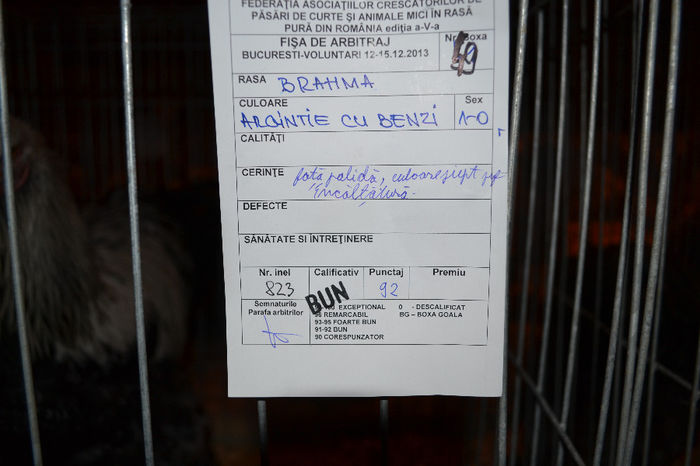 FEDERAȚIA ASOCIAȚIILOR CRESCĂTORILOR DE
PĂSĂRI DE CURTE ȘI ANIMALE MICI ÎN RASĂ
PURĂ DIN ROMÂNIA ediția a-V-a
FIȘA DE ARBITRAJ
BUCUREȘTI-VOLUNTARI 12-15.12.2013
Nr. Boxa
RASA BRAHMA
CULOARE
ARGINTIE CU BENZI
Sex
1-0
CALITĂȚI
CERINȚE fată palidă, culoare piept și
încălțătură.
DEFECTE
SĂNĂTATE SI ÎNTREȚINERE
Nr. inel Calificativ Punctaj Premiu
823 BUN 92
Semnaturile
Parafa arbitrilor
EXCEPTIONAL 0 - DESCALIFICAT
REMARCABIL BG – BOXA GOALA
93-95 FOARTE BUN
91-92 BUN
90 CORESPUNZATOR